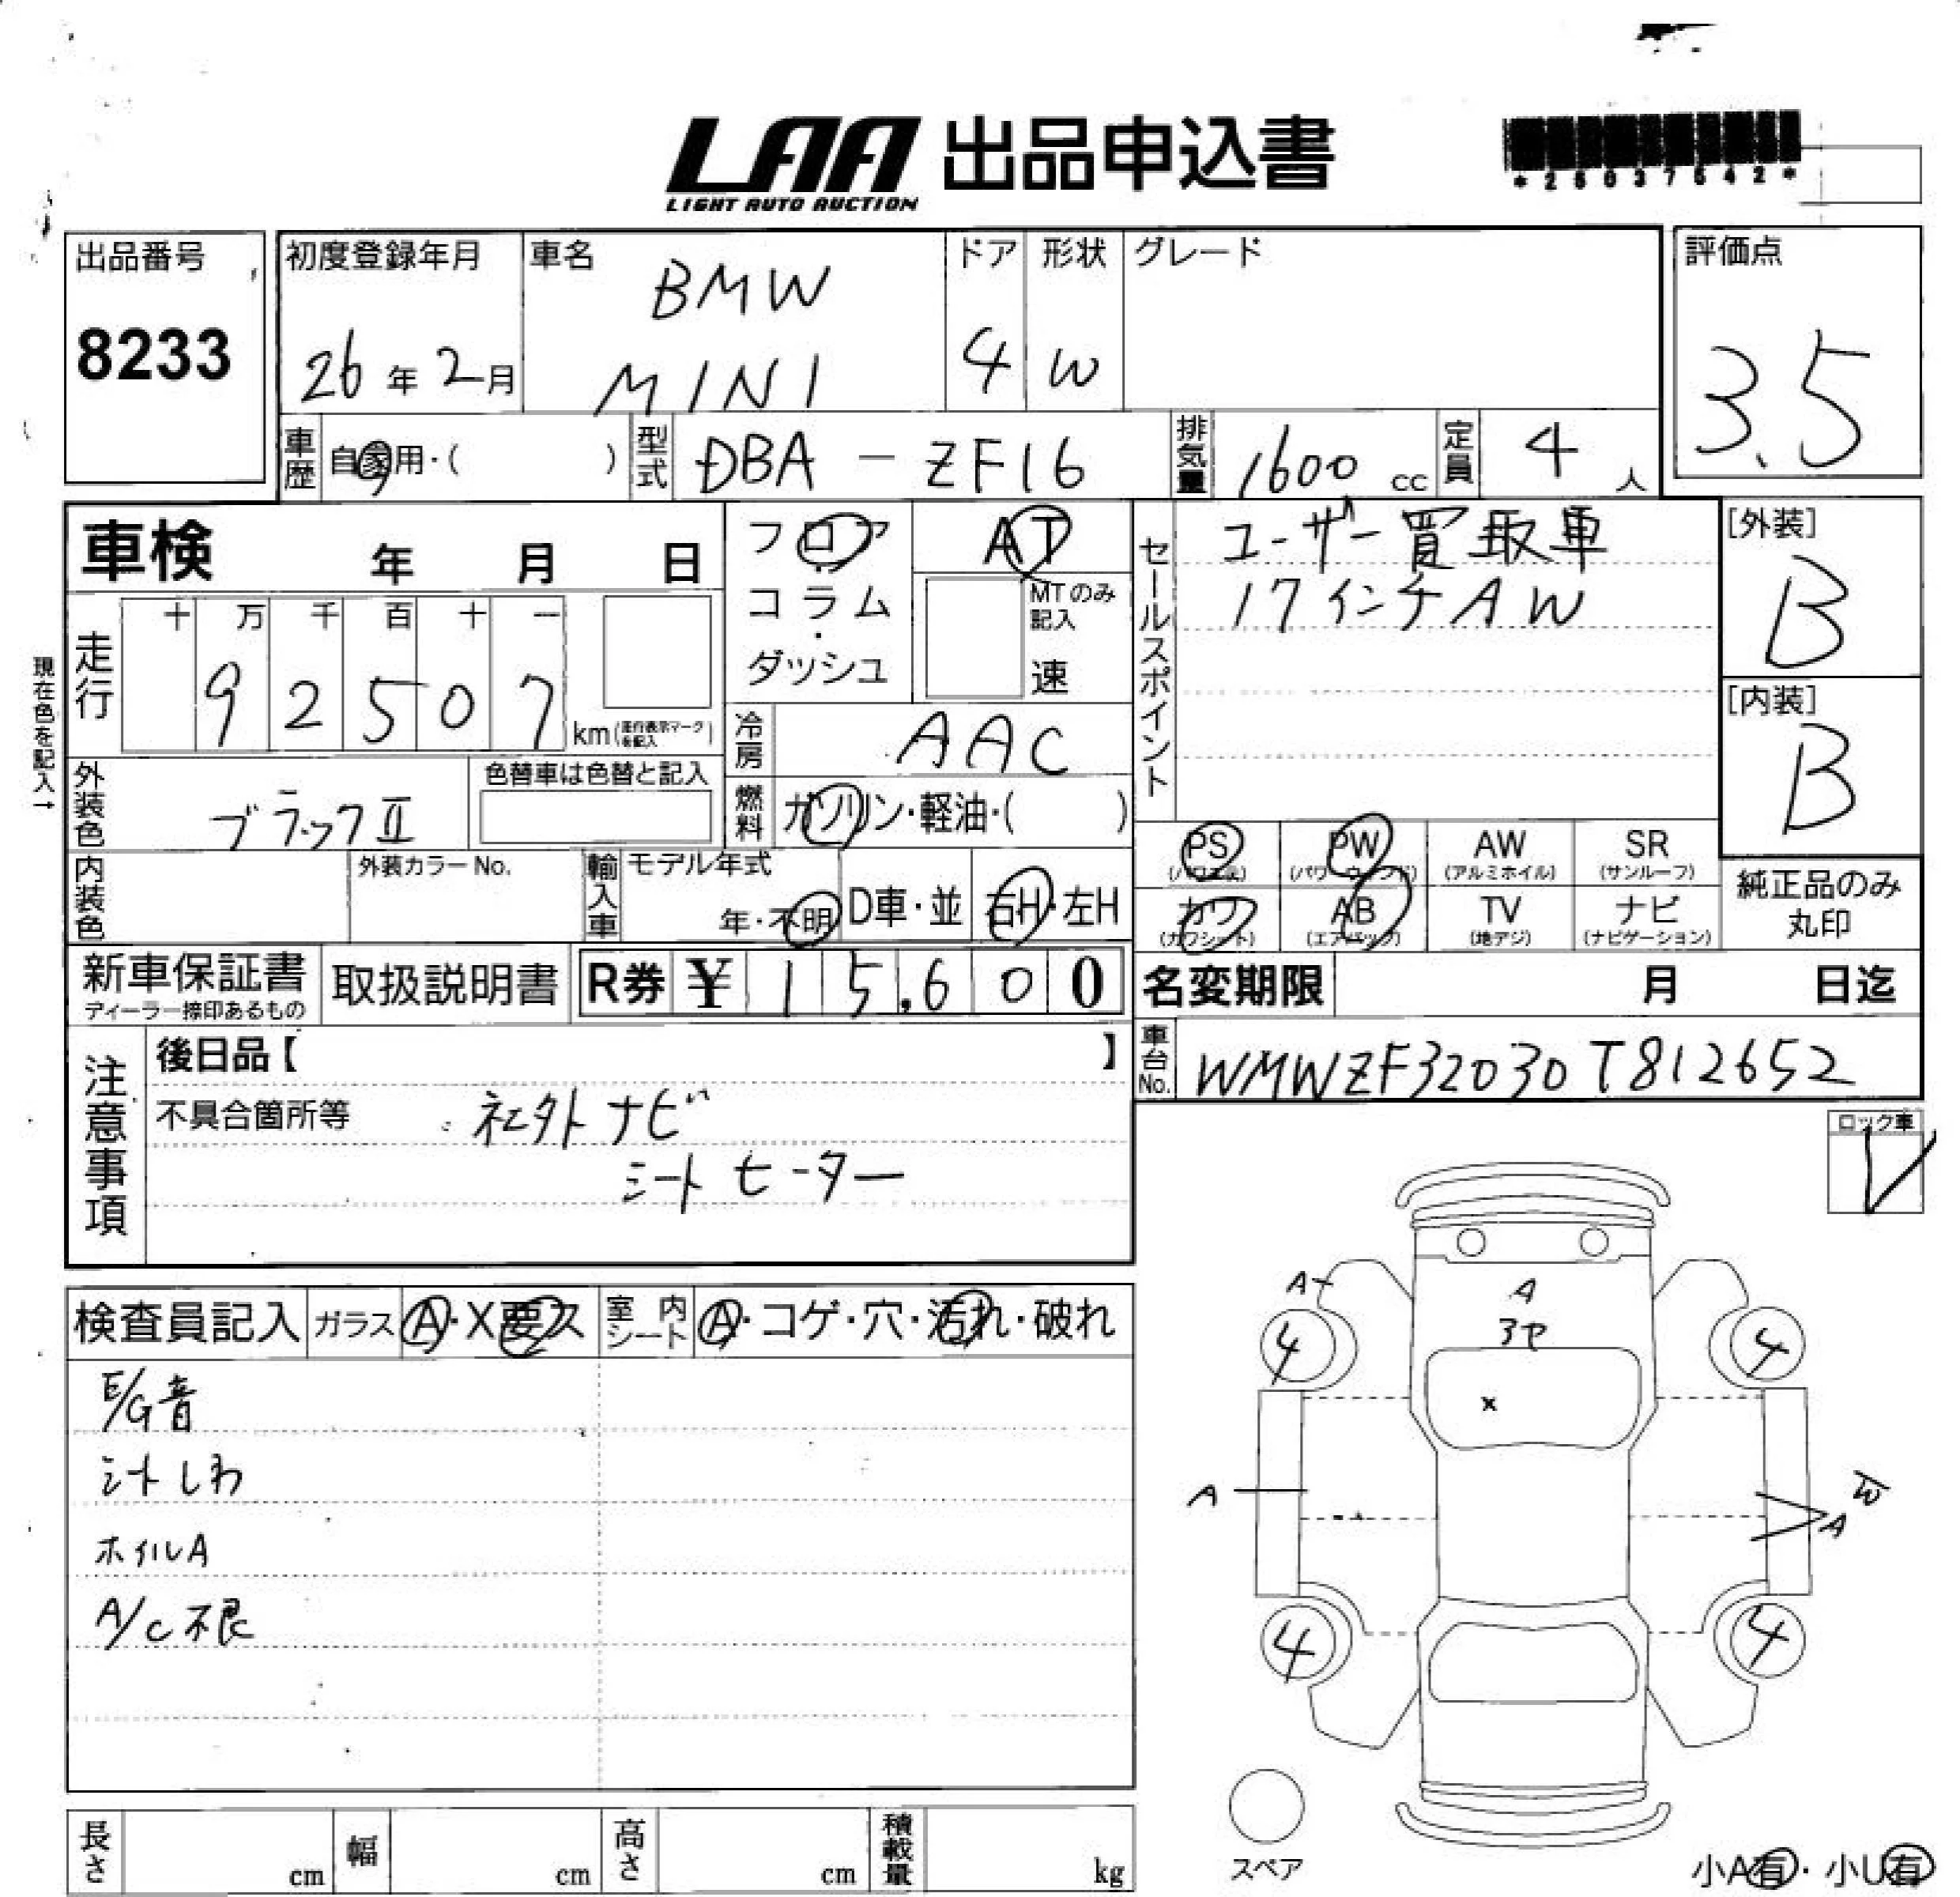 LAA 出品申込書
LIGHT AUTO AUCTION
*26037542*
出品番号
8233
初度登録年月
26年2月
車名
BMW
MINI
ドア
4
形状
W
グレード
評価点
3.5
車歴
自家用・( )
型式
DBA-ZF16
排気量
1600cc
定員
4人
車検 年 月 日
フロア
コラム
・
ダッシュ
AT
MTのみ
記入
速
セールスポイント
ユーザー買取車
17インチAW
[外装]
B
[内装]
B
走行
十 万 千 百 十 一
9 2 5 0 7
km(走行表示マークを記入)
現在色を記入→
冷房
AAC
外装色
ブラックⅡ
色替車は色替と記入
燃料
ガソリン・軽油・( )
内装色
外装カラーNo.
輸入車
モデル年式
年・不明
D車・並
右H・左H
PS
(パワステ)
PW
(パワーウィンド)
AW
(アルミホイル)
SR
(サンルーフ)
カワ
(カワシート)
AB
(エアバック)
TV
(地デジ)
ナビ
(ナビゲーション)
純正品のみ
丸印
新車保証書
ディーラー捺印あるもの
取扱説明書
R券 ¥ 15,600
名変期限 月 日迄
注意事項
後日品【 】
不具合箇所等
社外ナビ
シートヒーター
車台No.
WMWZF32030T812652
ロック車
検査員記入
ガラス
A・X要ス
室内シート
A・コゲ・穴・汚れ・破れ
E/G音
シートしわ
ホイルA
A/C不良
A
A
4
4
X
A
W
A
4
4
スペア
小A有・小U有
長さ cm
幅 cm
高さ cm
積載量 kg